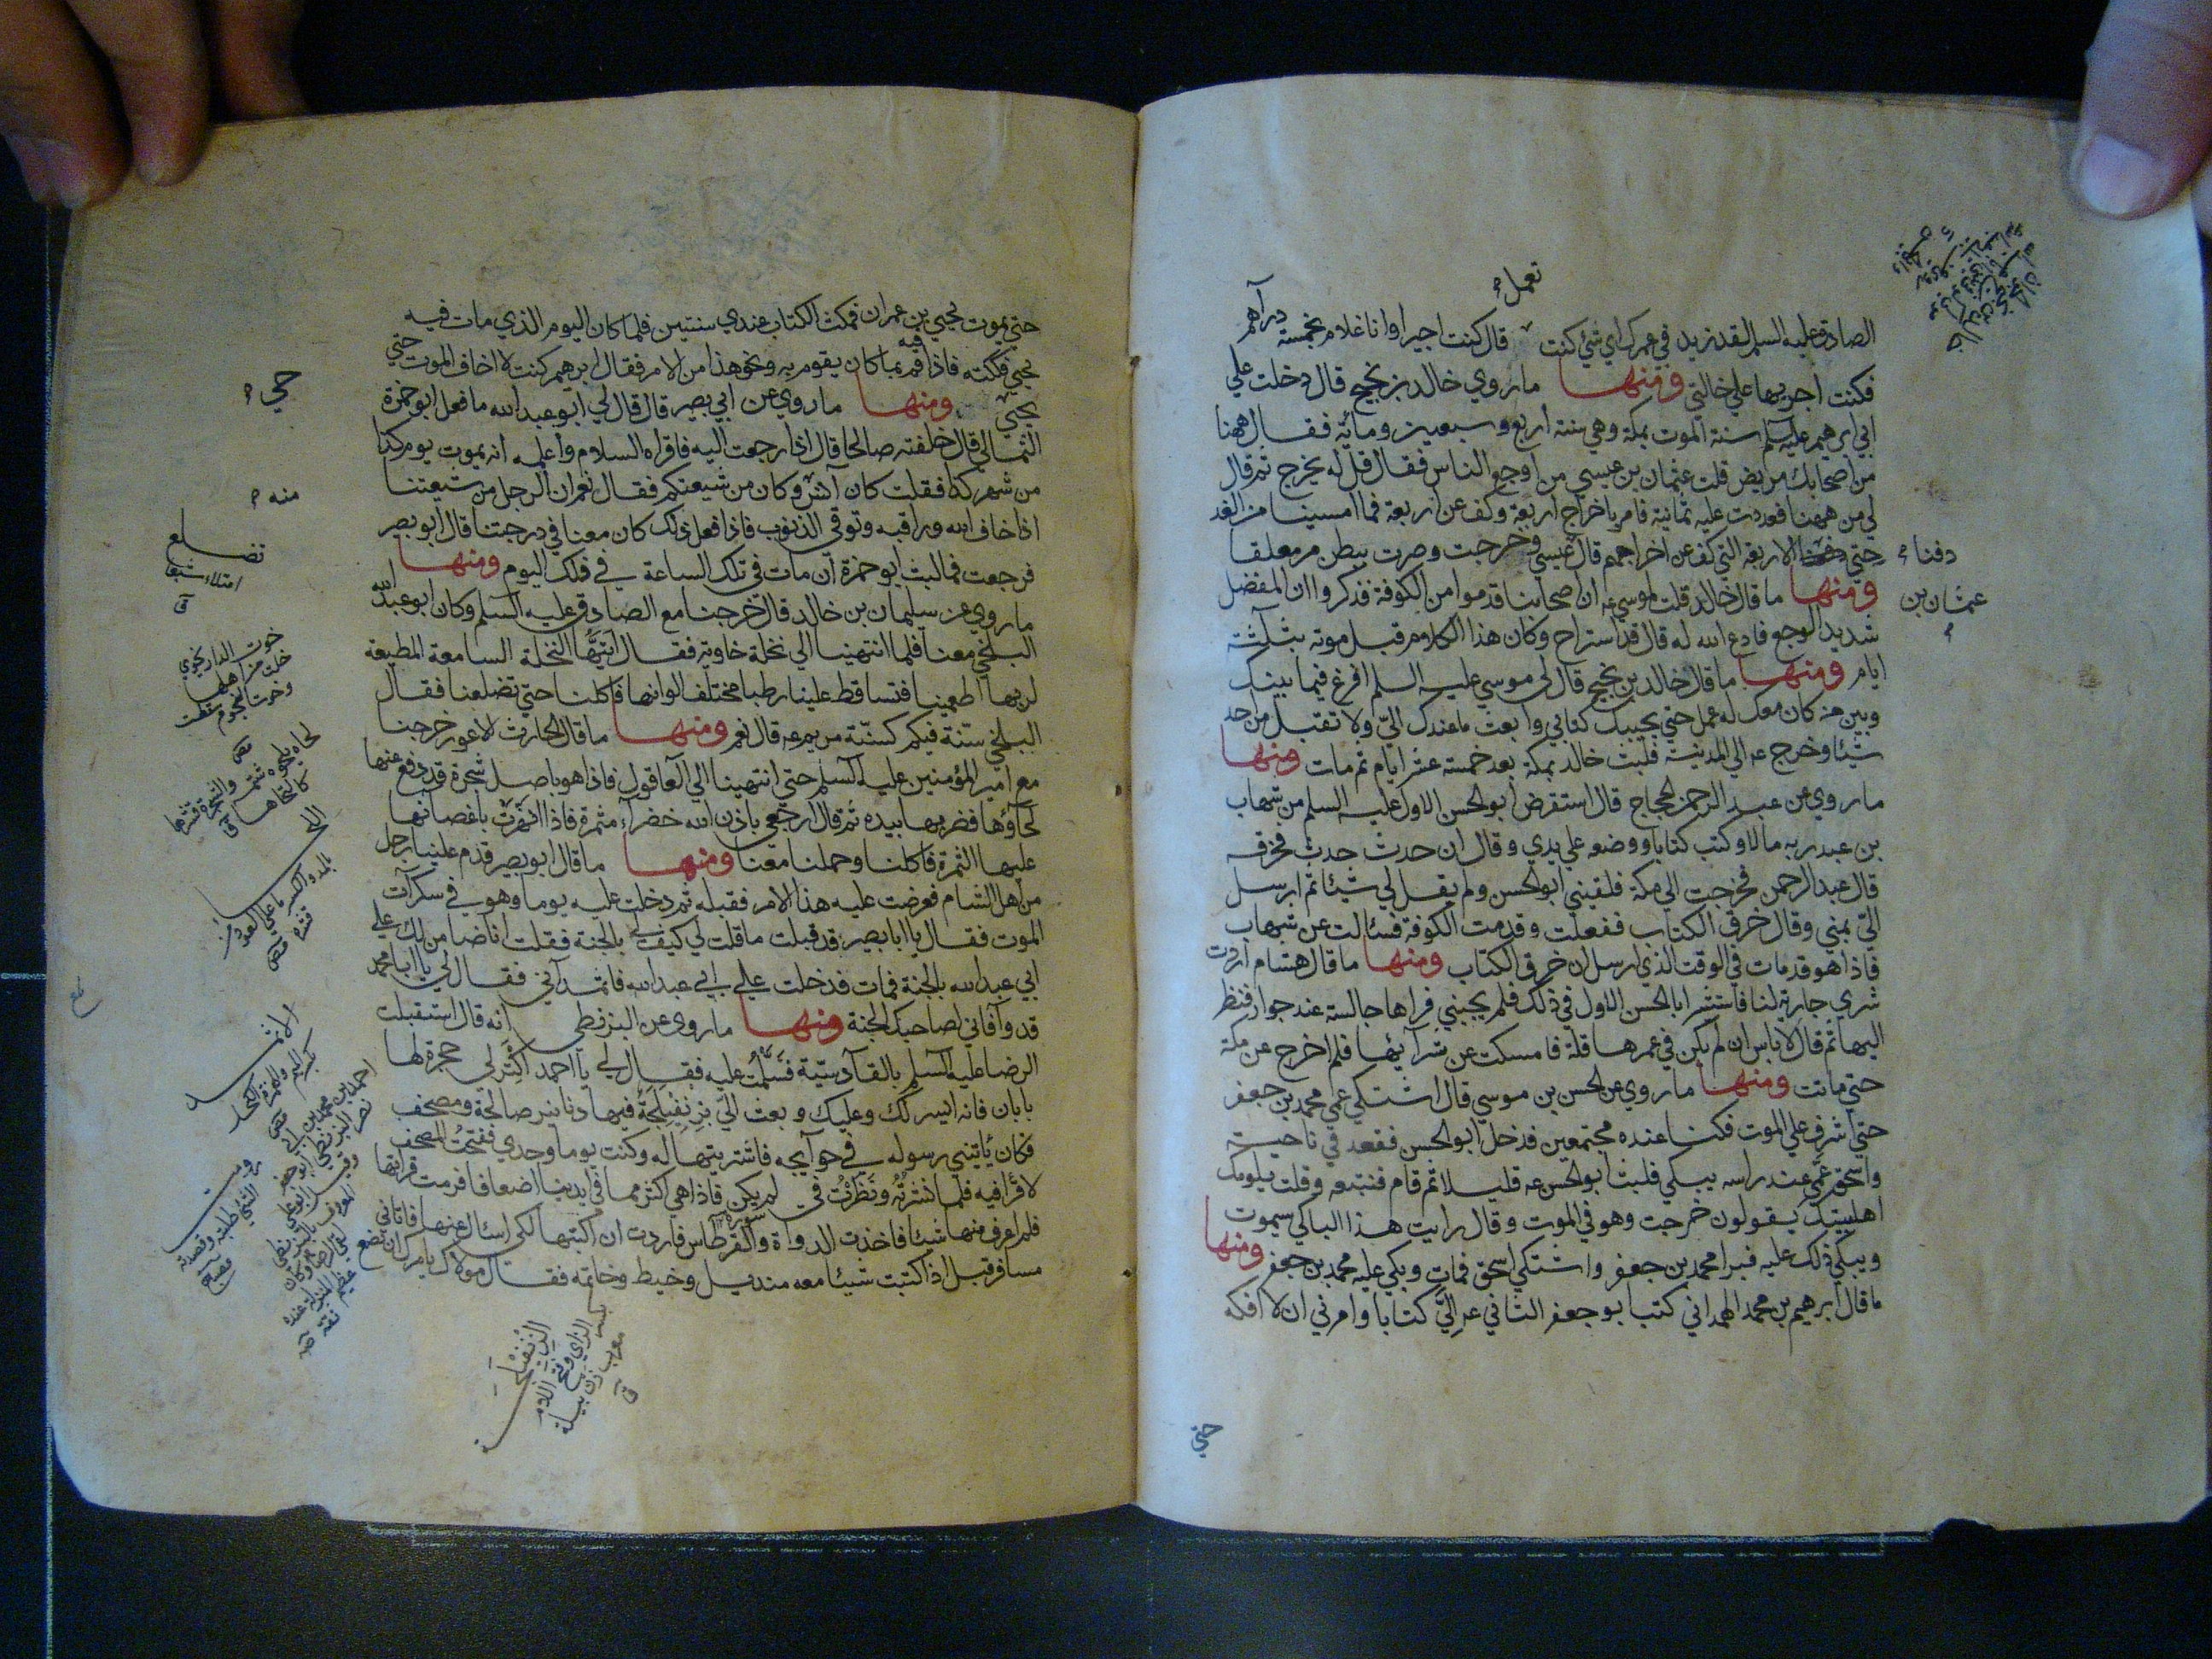 تعمل
الصادق عليه السلم لقد زيد في عمرك اي شئ كنت قال كنت اجيرا وانا غلام بخمسة دراهم
فكنت اجريها على خالتي ومنها ما روي خالد بن نجيح قال دخلت علي
ابي ابرهيم عليه السلم سنة الموت بمكة وهي سنة اربع وسبعين ومائة فقال ههنا
من اصحابك مريض قلت عثمان بن عيسي من اوجع الناس فقال قل له يخرج ثم قال
لي من ههنا فعددت عليه ثمانية فامر باخراج اربعة وكف عن اربعة فما امسينا من الغد
حتي الاربعة التي كف عن اخراجهم قال عيسي وخرجت وصرت ببطن مر معلقا
دفنا
عثمان بن
ومنها ما قال خالد قلت لموسي عه ان اصحابنا قدموا من الكوفة فذكروا ان المفضل
شديد الوجع فادع الله له قال قد استراح وكان هذا الكلام قبل موته بثلثة
ايام ومنها ما قال خالد بن نجيح قال لي موسي عليه السلم افرغ فيما بينك
وبين من كان معك له عمل حتي يجيبك كتابي وابعث ما عندك الي ولا تقبل من احد
شيئا وخرج عه الي المدينة فلبث خالد بمكة بعد خمسة عشر ايام ثم مات ومنها
ما روي عن عبد الرحمن لحجاج قال استقرض ابو لحسن الاول عليه السلم من شهاب
بن عبد ربه مالا وكتب كتابا ووضعه علي يدي وقال ان حدث حدث فخرقه
قال عبد الرحمن فخرجت الي مكة فلقيني ابو لحسن ولم يقل لي شيئا ثم ارسل
الي بمني وقال خرق الكتاب ففعلت وقدمت الكوفة فسئالت عن شهاب
فاذا هو قد مات في الوقت الذي ارسل ان خرق الكتاب ومنها ما قال هشام اردت
شري جارية لنا فاستشر ابا لحسن الاول في ذلك فلم يجبني فراها جالسة عند جوار فنظر
اليها ثم قال لا باس ان لم يكن في عمرها قلة فامسكت عن شرائها فلم اخرج عن مكة
حتي ماتت ومنها ما روي عن لحسن بن موسي قال اشتكي عمي محمد بن جعفر
حتي اشرف علي الموت فكنا عنده مجتمعين فدخل ابو لحسن فقعد في ناحية
واسحق عمي عند راسه يبكي فلبث ابو لحسن عه قليلا ثم قام فتبعه وقلت يلومك
اهلبيتك يقولون خرجت وهو في الموت وقال رايت هذا الباكي سيموت
ويبكي ذلك عليه فبرا محمد بن جعفر واشتكي اسحق فمات وبكي عليه محمد بن جعفر ومنها
ما قال ابرهيم بن محمد الهمداني كتب ابو جعفر الثاني عه الي كتابا وامرني ان لا افكه
حتي
حتي يموت يحيي بن عمران فمكث الكتاب عندي سنتين فلما كان اليوم الذي مات فيه
يحيي فككته فاذا فيه قم بما كان يقوم به ونحو هذا من الامر فقال ابرهيم كنت لا اخاف الموت حتي
يحيي ومنها ما روي عن ابي بصير قال قال لي ابو عبد الله ما فعل ابو حمزة
حي
الثمالي قال خلفته صالحا قال اذا رجعت اليه فاقراه السلام واعلمه انه يموت يوم كذا
من شهر كذا فقلت كان انس وكان من شيعتكم فقال نعم ان الرجل من شيعتنا
منه
اذا خاف الله وراقبه وتوقي الذنوب فاذا فعل ذلك كان معنا في درجتنا قال ابو بصير
فرجعت فما لبث ابو حمزة ان مات في تلك الساعة في ذلك اليوم ومنها
تضلع
امتلاء شبعا
ق
ما روي عن سليمان بن خالد قال خرجنا مع الصادق عليه السلم وكان ابو عبد الله
البلخي معنا فلما انتهينا الي نخلة خاوية فقال ايتها النخلة السامعة المطيعة
لربها اطعمينا فتساقط علينا رطبا مختلف الوانها فاكلنا حتي تضلعنا فقال
خوت الدار يخوي
خلت من اهلها
وخوت النجوم سقطت
البلخي سنة فيكم كسنة مريم عه قال نعم ومنها ما قال الحارث الاعور خرجنا
مع امير المؤمنين عليه السلم حتي انتهينا الي العاقول فاذا هو باصل شجرة قد دفع عنها
لحاؤها فضربها بيده ثم قال ارجعي باذن الله خضراء مثمرة فاذا اهتزت باغصانها
عليها الثمرة فاكلنا وحملنا معنا ومنها ما قال ابو بصير قدم علينا رجل
من اهل الشام فعرضت عليه هذا الامر فقبله ثم دخلت عليه يوما وهو في سكرات
الموت فقال يا ابا بصير قد قبلت ما قلت لي كيف بالجنة فقلت انا ضامن لك علي
ابي عبد الله بالجنة فمات فدخلت علي ابي عبد الله فابتدأني فقال لي يا ابا محمد
قد وافاني لصاحبك الجنة ومنها ما روي عن البزنطي انه قال استقبلت
الرضا عليه السلم بالقادسية فسلمت عليه فقال لي يا احمد اكتر لي حجرة لها
بابان فانه ايسر لك وعليك وبعث الي بزنفيلجة فيها دنانير صالحة ومصحف
فكان ياتيني رسوله في حوائجه فاشتريتها له وكنت يوما وحدي ففتحت المصحف
لاقرا فيه فلما نشرته ونظرت في لم يكن فاذا هي اكثر مما في ايدينا اضعافا فرمت قراتها
سورة
فلم اعرف منها شيئا فاخذت الدواة والقرطاس فاردت ان اكتبها لكي اسئال عنها فاتاني
مسافر قبل اذ اكتبت شيئا معه منديل وخيط وخاتمه فقال مولاك يامرك ان تضع
الزنفيلجة
بكسر الزاي وفتح اللام
معرب زن بيلة
ق